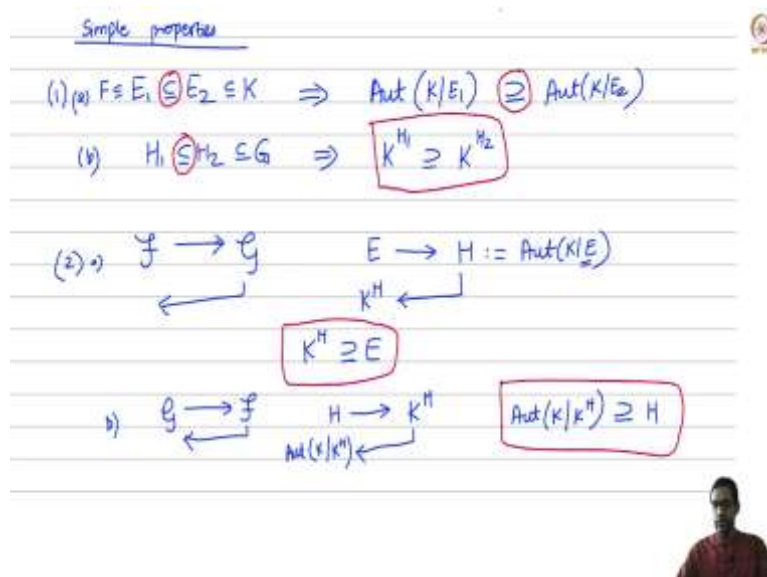 Simple properties
(1) (a) F ⊆ E₁ ⊆ E₂ ⊆ K ⇒ Aut (K/E₁) ⊇ Aut(K/E₂)
(b) H₁ ⊆ H₂ ⊆ G ⇒ K^{H₁} ⊇ K^{H₂}
(2) a) 𝓕 → 𝓖 E → H := Aut(K/E)
K^H ←
K^H ⊇ E
b) 𝓖 → 𝓕 H → K^H Aut(K/K^H) ⊇ H
Aut(K/K^H) ←